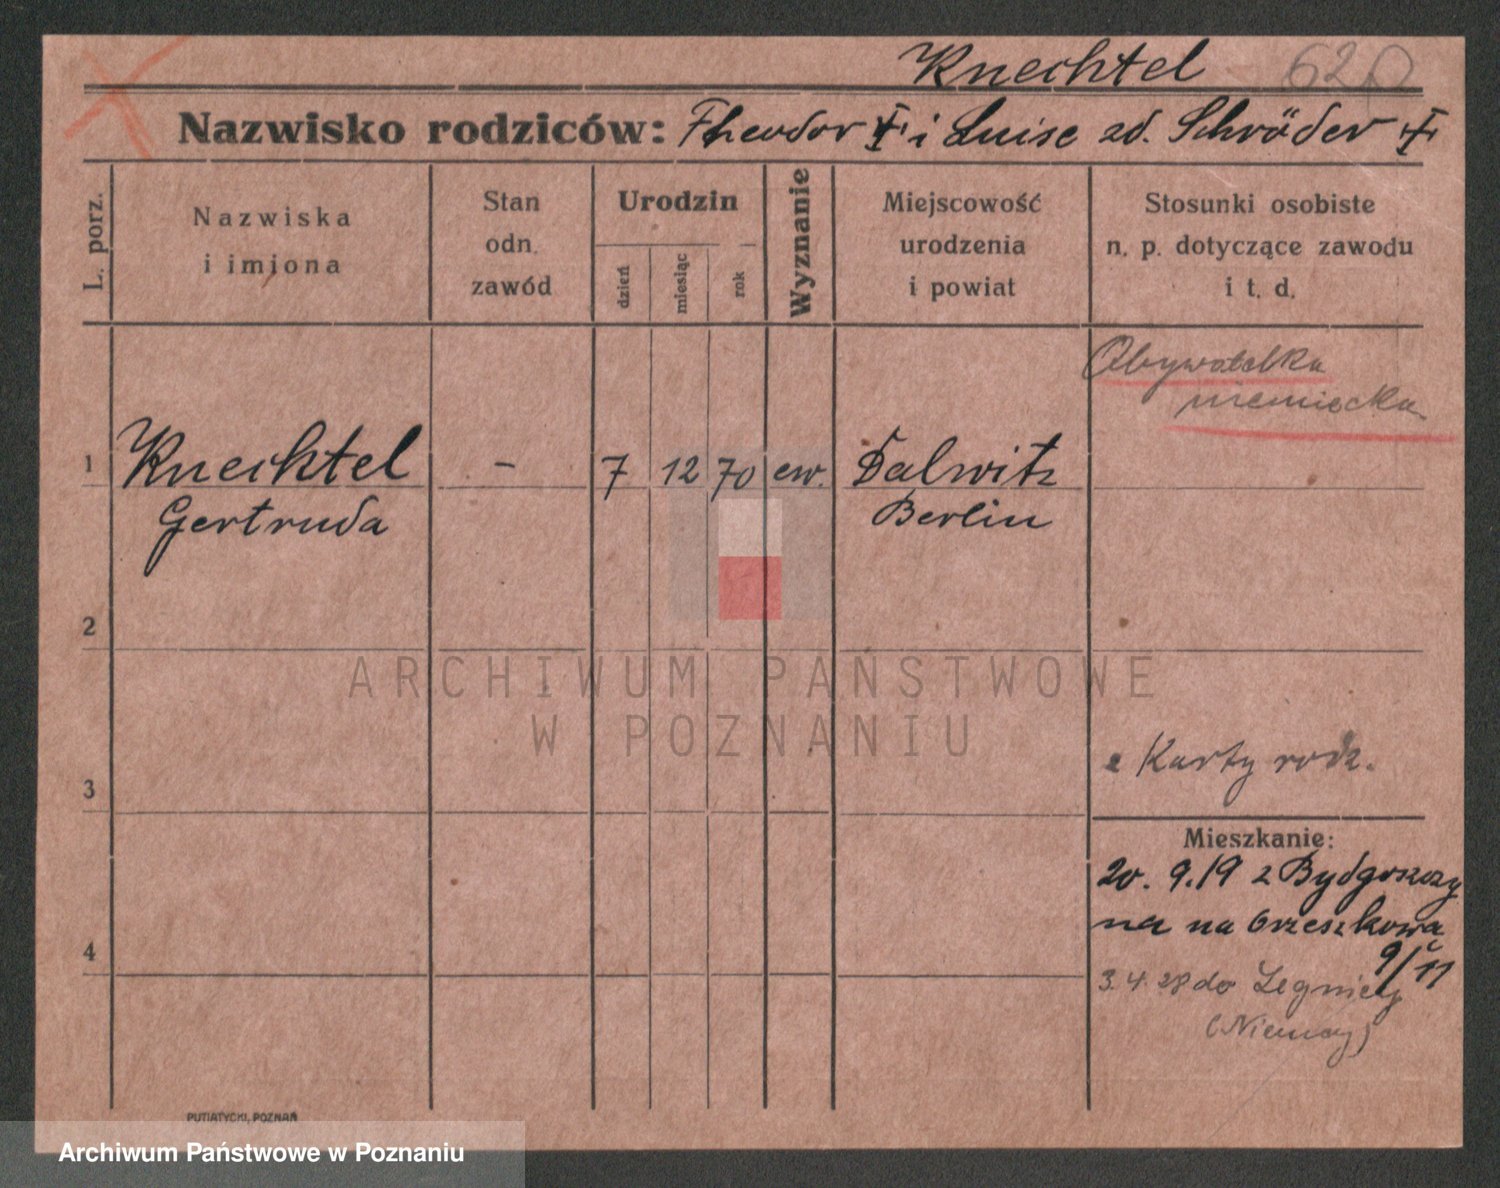 Knechtel 620
Nazwisko rodziców: Theodor i Luise zd. Schröder
L. porz.
Nazwiska
i imiona
Stan
odn.
zawód
Urodzin
dzień
miesiąc
rok
Wyznanie
Miejscowość
urodzenia
i powiat
Stosunki osobiste
n. p. dotyczące zawodu
i t. d.
Obywatelka
niemiecka
1 Knechtel - 7 12 70 ew. Dalwitz
Gertruda Berlin
2
3
z Karty rodz.
Mieszkanie:
20. 9.19 z Bydgoszczy
na Orzeszkowa
9/11
4
3. 4. 28 do Legnicy
(Niemcy)
PUTIATYCKI, POZNAŃ
ARCHIWUM PAŃSTWOWE
W POZNANIU
Archiwum Państwowe w Poznaniu